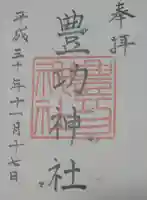 奉拝
豊功神社
平成三十年十一月十七日